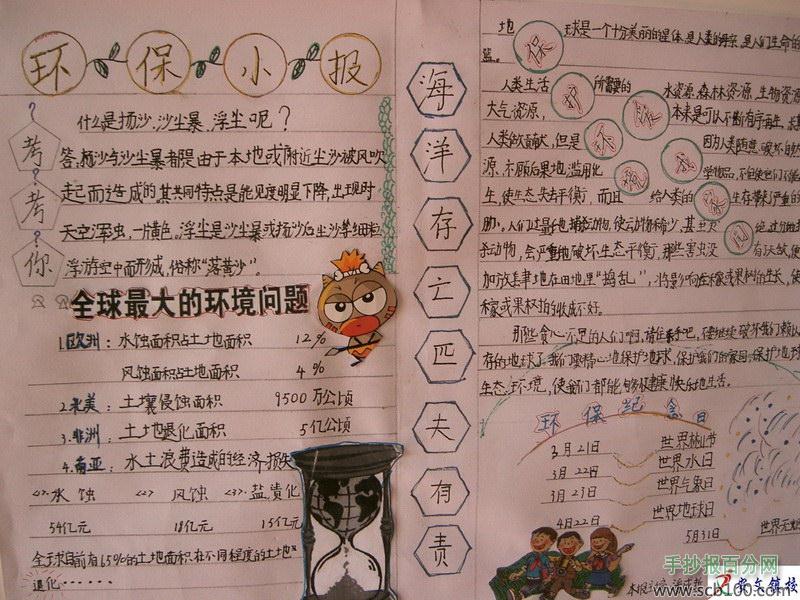 环保小报
考考你
什么是扬沙、沙尘暴、浮尘呢？
答：扬沙与沙尘暴都是由于本地或附近尘沙被风吹
起而造成的，其共同特点是能见度明显下降，出现时
天空浑浊，一片黄色。浮尘是沙尘暴或扬沙后沙尘等细粒
浮游空中而形成，俗称“落黄沙”。
全球最大的环境问题
1.欧洲：水蚀面积占土地面积 12%
风蚀面积占土地面积 4%
2.北美：土壤侵蚀面积 9500万公顷
3.非洲：土地退化面积 5亿公顷
4.南亚：水土浪费造成的经济损失
<1>水蚀 <2>风蚀 <3>盐渍化
54亿元 18亿元 15亿元
全球目前有65%的土地面积在不同程度的土地
退化……
海洋存亡匹夫有责
地 球是一个十分美丽的星体，是人类的母亲，是人们生命的
篮。
人类生活 所需要的 水资源、森林资源、生物资源
大气资源， 本来是可以不断有序再生，
人类做贡献，但是 因为人类随意
源，不顾后果地滥用化
生，使生态失去平衡，而且 给人类的 生存带来严重的
杀动物，会严重地破坏生态平衡，那些害虫没
加放肆地在田地里“捣乱”，将影响庄稼或果树的生长，使
稼或果树的收成不好。
那些贪心不足的人们啊，请住手吧，
存的地球了，我们要精心地保护地球，保护我们的家园，保护地球
生态环境，使我们都能够健康快乐地生活。
环保纪念日
3月21日 世界林节
3月22日 世界水日
3月23日 世界气象日
4月22日 世界地球日
5月31日 世界无
手抄报百分网
www.scb100.com